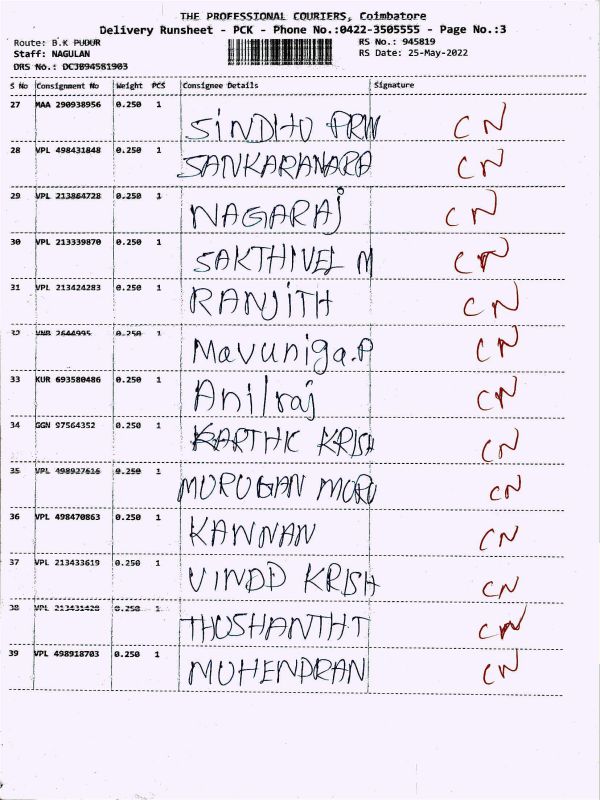 THE PROFESSIONAL COURIERS, Coimbatore
Delivery Runsheet - PCK - Phone No.:0422-3505555 - Page No.:3
Route: B.K PUDUR RS No.: 945819
Staff: NAGULAN RS Date: 25-May-2022
DRS No.: DCJB94581903
S No Consignment No Weight PCS Consignee Details Signature
27 MAA 290938956 0.250 1 SINDHU PRIN CN
28 VPL 498431848 0.250 1 SANKARANARA CN
29 VPL 213864728 0.250 1 NAGARAJ CN
30 VPL 213339870 0.250 1 SAKTHIVEL M CN
31 VPL 213424283 0.250 1 RANJITH CN
32 VNB 2644995 0.250 1 Mavuniga.P CN
33 KUR 693580486 0.250 1 Anilraj CN
34 GGN 97564352 0.250 1 KARTHIC KRISH CN
35 VPL 498927616 0.250 1 MURUGAN MURU CN
36 VPL 498470863 0.250 1 KANNAN CN
37 VPL 213433619 0.250 1 VINOD KRISH CN
38 VPL 213431428 0.250 1 THUSHANTH T CN
39 VPL 498918703 0.250 1 MUHENDRAN CN